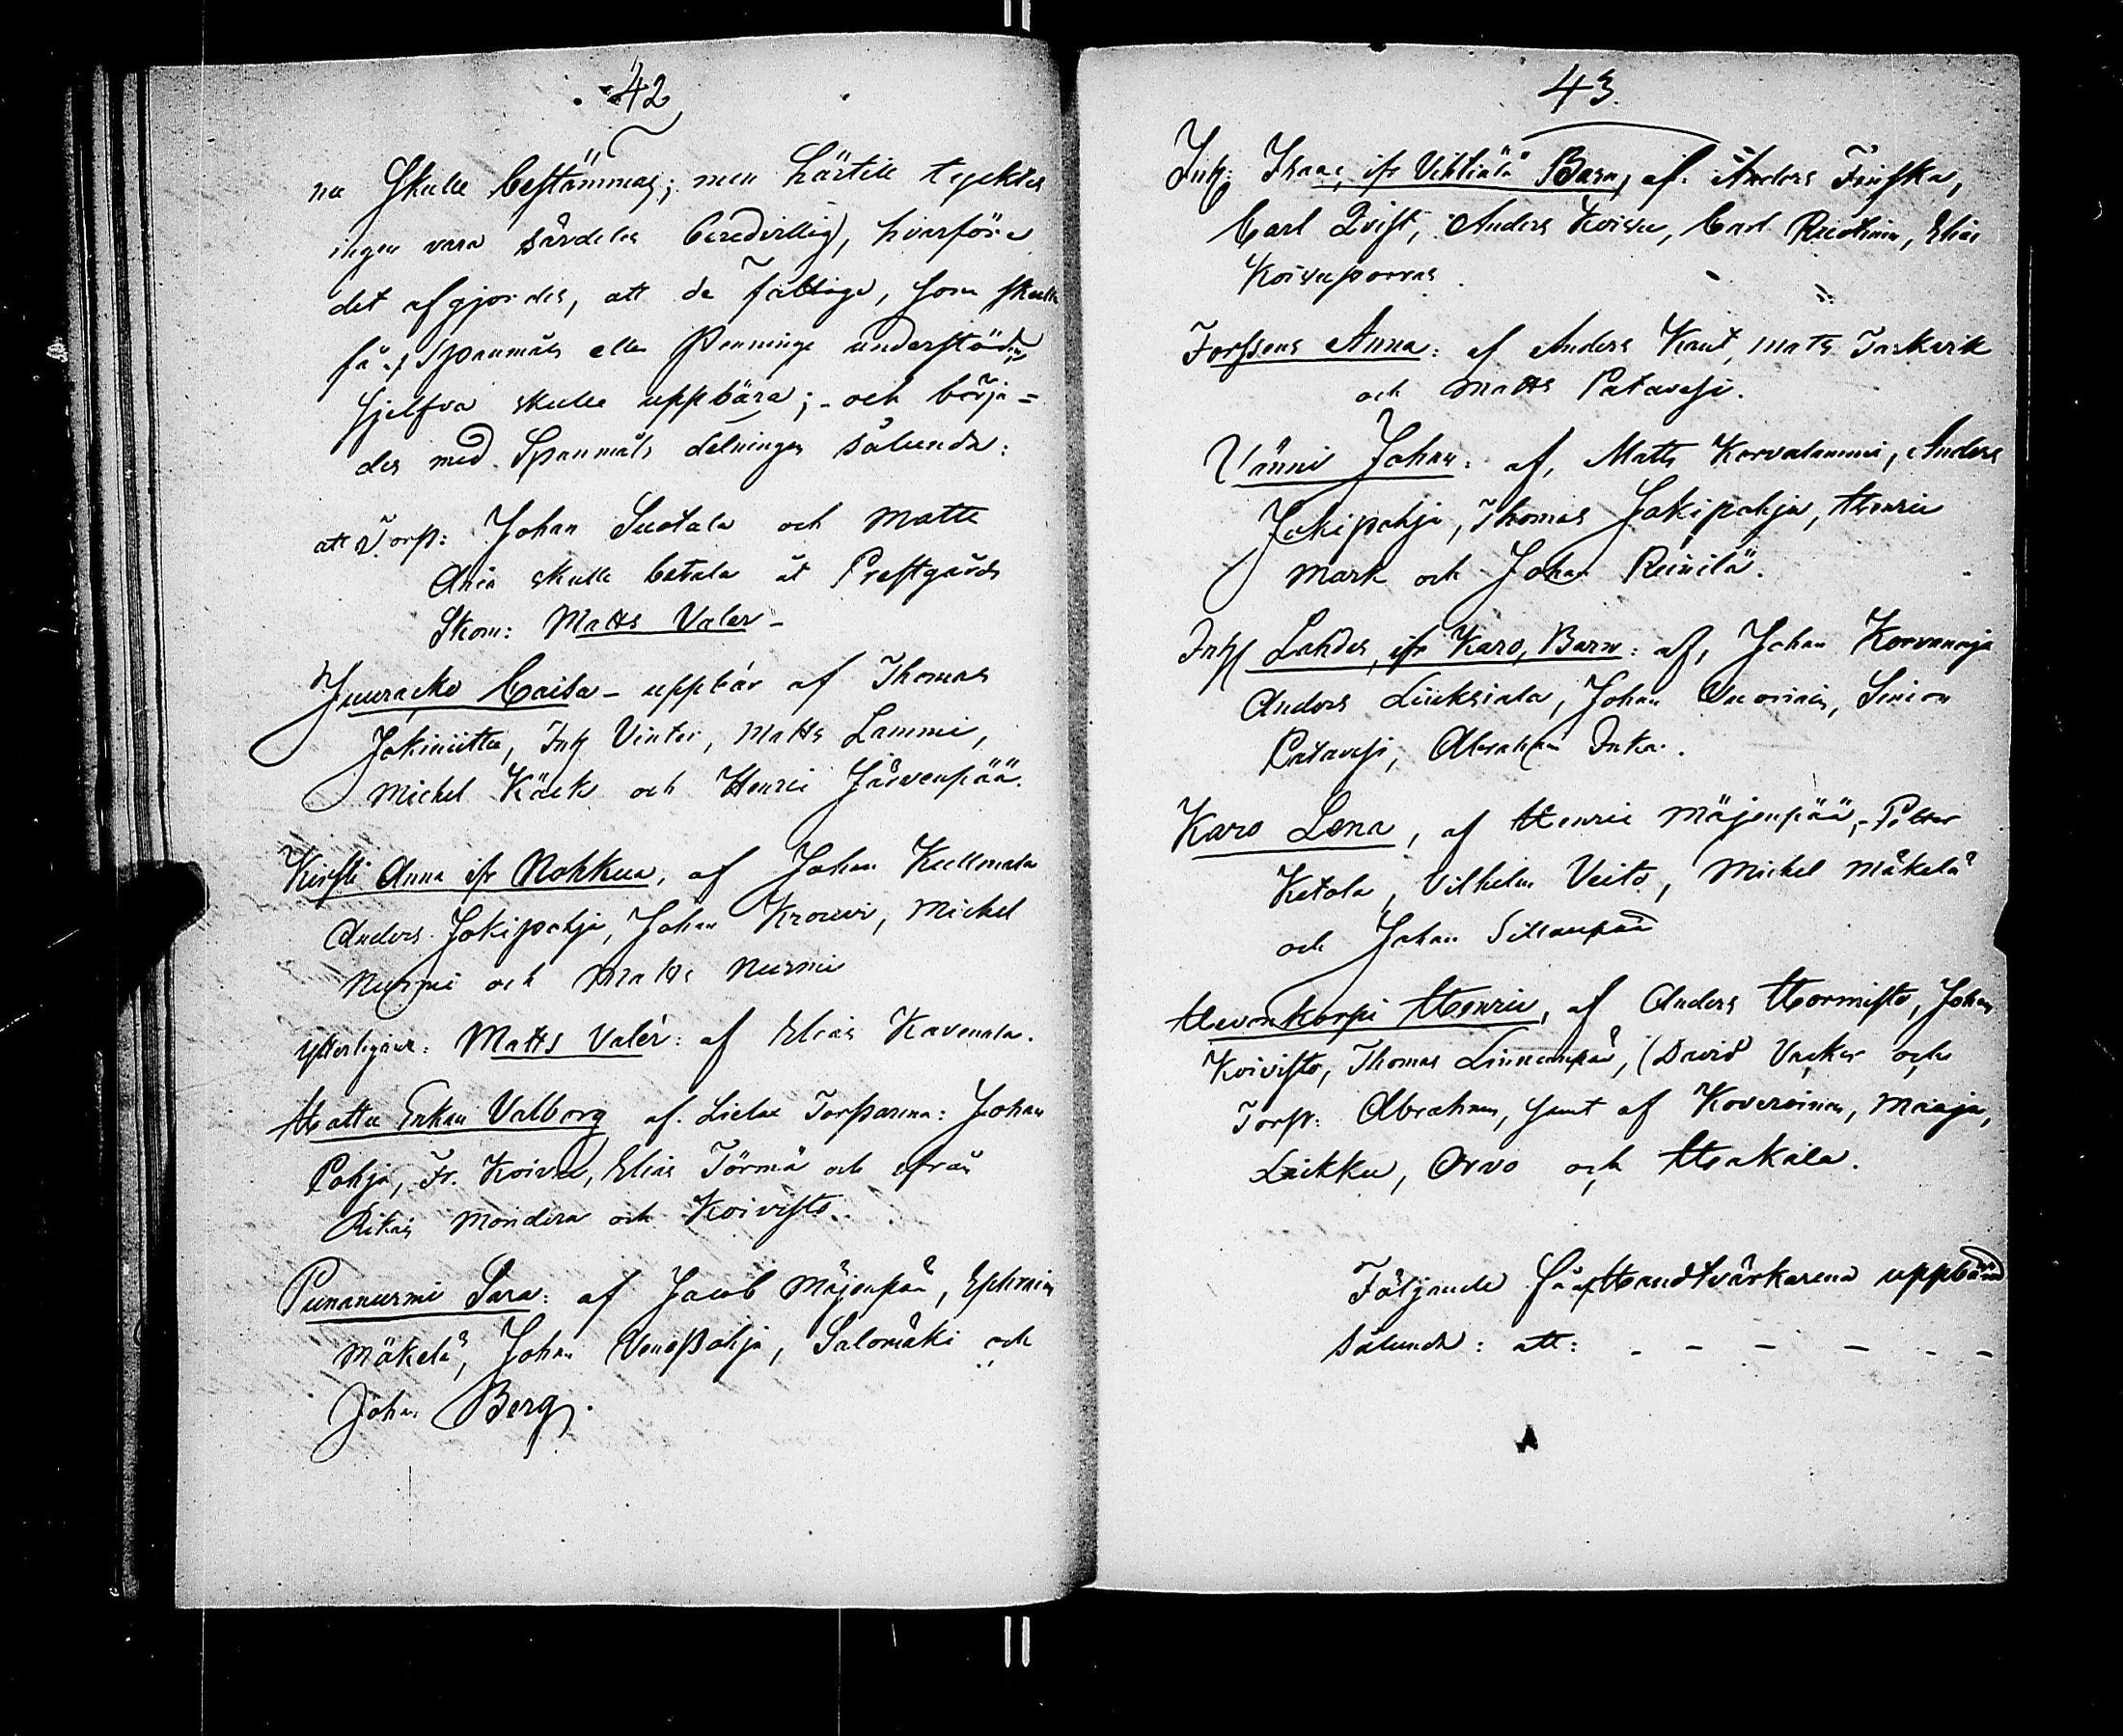 42
na skulle bestämmas; men härtill tycktes
ingen vara särdeles beredvillig, hvarföre
det afgjordes, att de fattige, som skulle
få Spanmåls eller Pennings understöd,
sjelfva skulle uppbära; - och börja=
des med Spanmåls delningen sålunda:
att Torp: Johan Suotala och Matts
Ania skulle betala åt Prestgårds
Skom: Matts Valer -
Juuracko Caisa - uppbär af Thomas
Jokiniittu, Inh Vinter, Matts Lammi,
Michel Käck och Henric Järvenpää.
Kirsti Anna ifr Nohkua, af Johan Kullmala
Anders Jokipohja, Johan Krouvi, Michel
Nurmi och Matts Nurmi
ytterligare: Matts Valér: af Elias Kavenala.
Hattu Erkan Valborg af Lielax Torparena: Johan
Pohja, Fr. Koivu, Elias Törmä och ifrån
Rikas Mondera och Koivisto.
Punanurmi Sara: af Jacob Mäjenpää, Ephraim
Mäkelä, Johan Venespohja, Salomäki och
Johan Berg.
43.
Inh: Isaac, ifr Vihtiälä Barn, af Anders Finska,
Carl Qvist, Anders Koivu, Carl Riutinin, Elias
Koisuporras.
Forssens Anna: af Anders Kant, Mats Taskvik
och Matts Patavesi.
Vänni Johan: af, Matts Korvalammi, Anders
Jokipohja, Thomas Jokipohja, Henric
Mark och Johan Reinilä.
Inh Lahdes, ifr Karo, Barn: af, Johan Korvenoja
Anders Liuksiala, Johan Vuorinin, Simon
Patavesi, Abraham Inka.
Karo Lena, af Henric Mäjenpää, Petter
Ketola, Vilhelm Veito, Michel Mäkelä
och Johan Sillanpää
Hevonkorpi Henric, af Anders Hormisto, Johan
Koivisto, Thomas Linnanpää, David Vacker och
Torp: Abraham, samt af Koveroinen, Maaja,
Liikku, Orvo och Hakala.
Följande få af Handtvärkarena uppbära
sålunda: att: - - - - - -